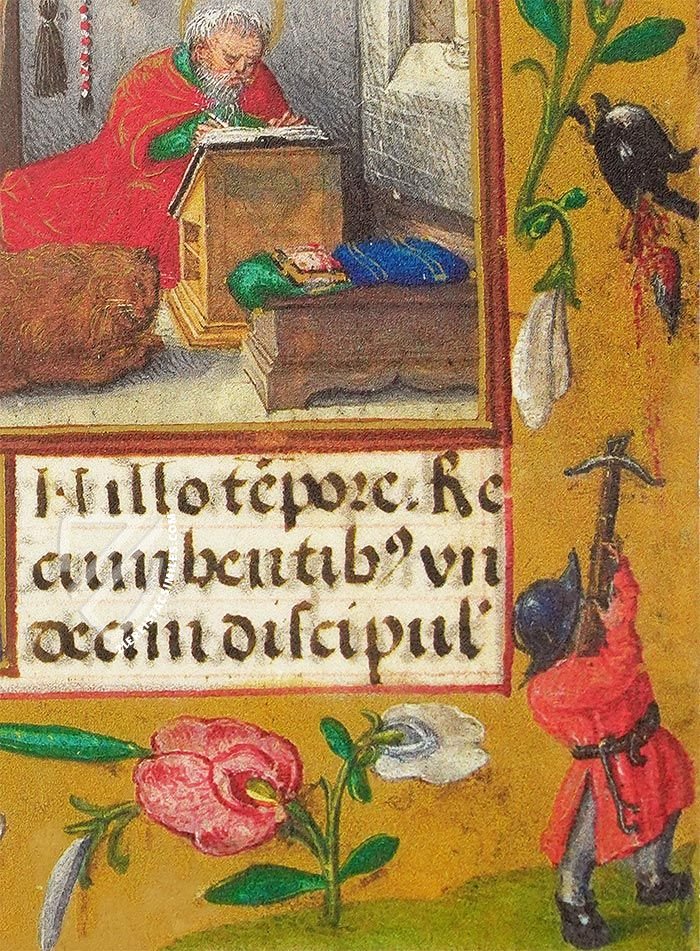 In illo tēpore. Re
cumbentibꝰ vn
decim discipul'